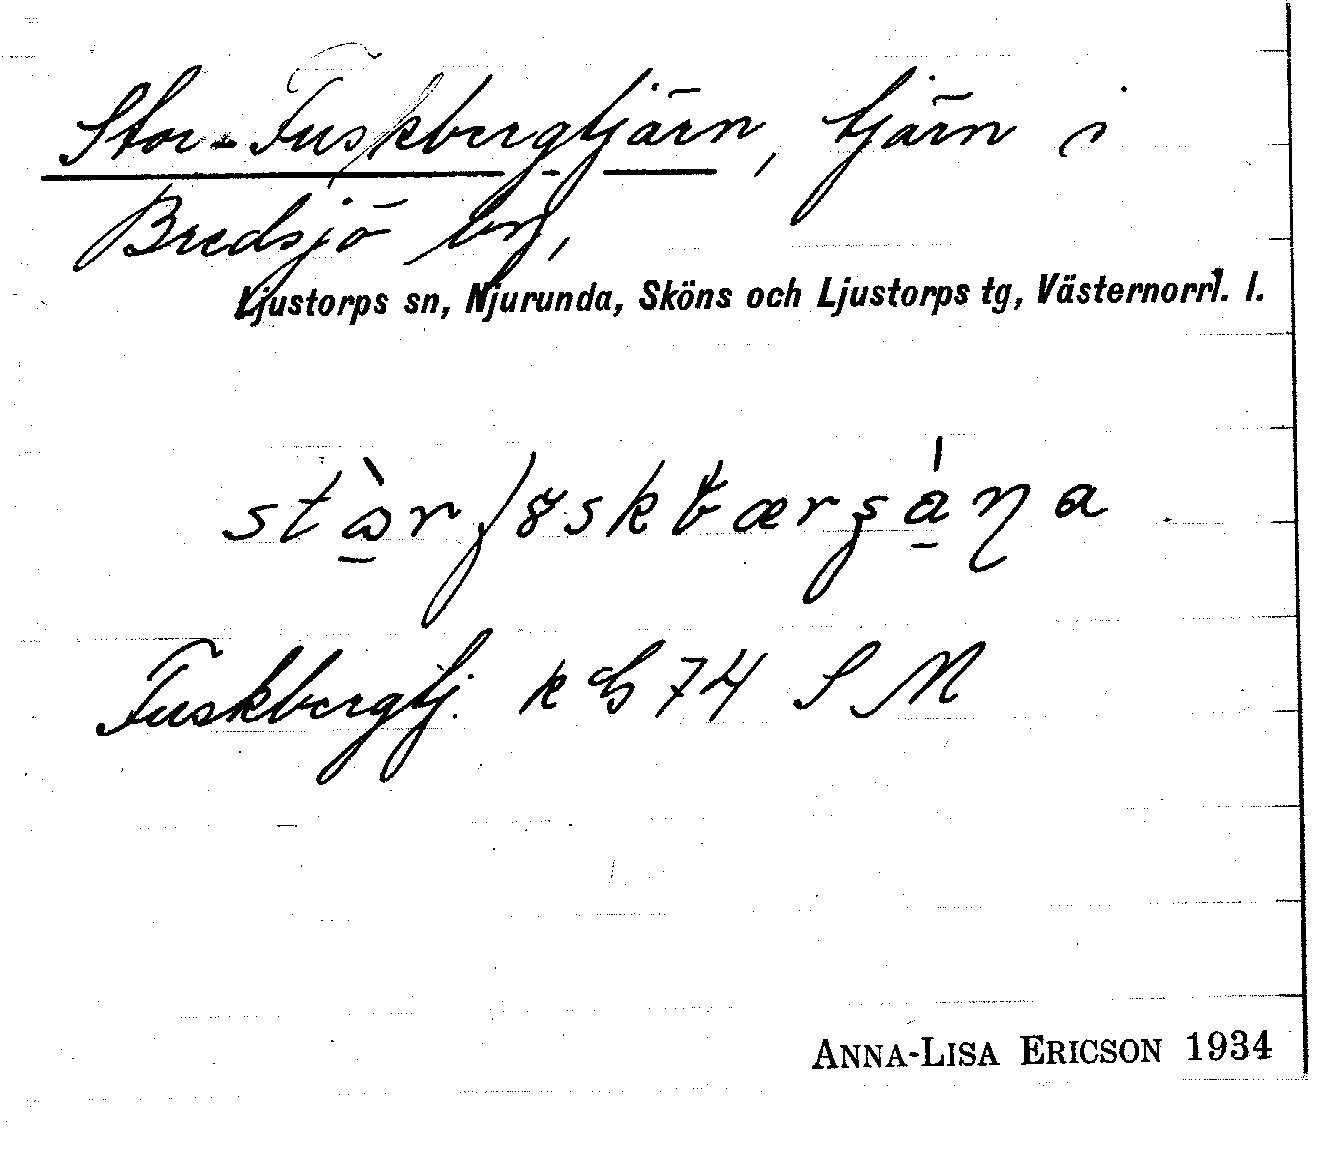 Stor-Fuskbergtjärn, tjärn i
Bredsjö by,
Ljustorps sn, Njurunda, Sköns och Ljustorps tg, Västernorrl. l.
Fuskbergtj. k 74 S M
ANNA-LISA ERICSON 1934